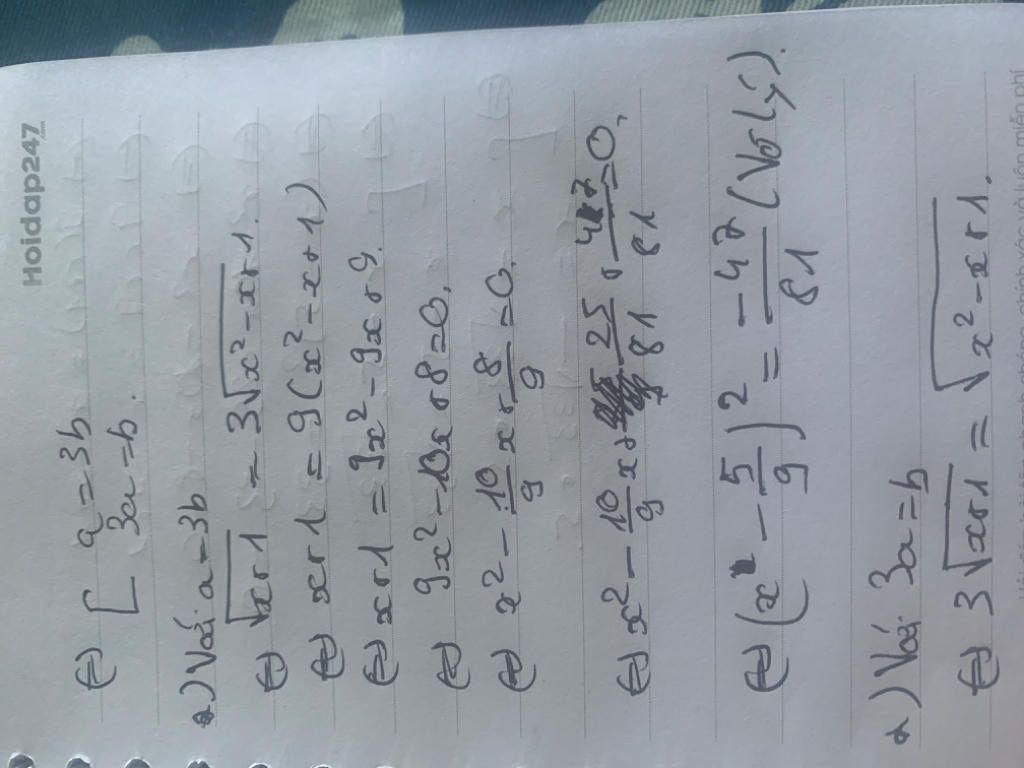 Hoidap247.com
⇔ [ a = 3b
3a = b.
*) Với a = 3b
⇔ √(x+1) = 3√(x² - x + 1).
⇔ x + 1 = 9(x² - x + 1)
⇔ x + 1 = 9x² - 9x + 9.
⇔ 9x² - 10x + 8 = 0.
⇔ x² - 10/9 x + 8/9 = 0.
⇔ x² - 10/9 x + 25/81 + 47/81 = 0.
⇔ (x - 5/9)² = -47/81 (Vô lý).
*) Với 3a = b
⇔ 3√(x+1) = √(x² - x + 1).